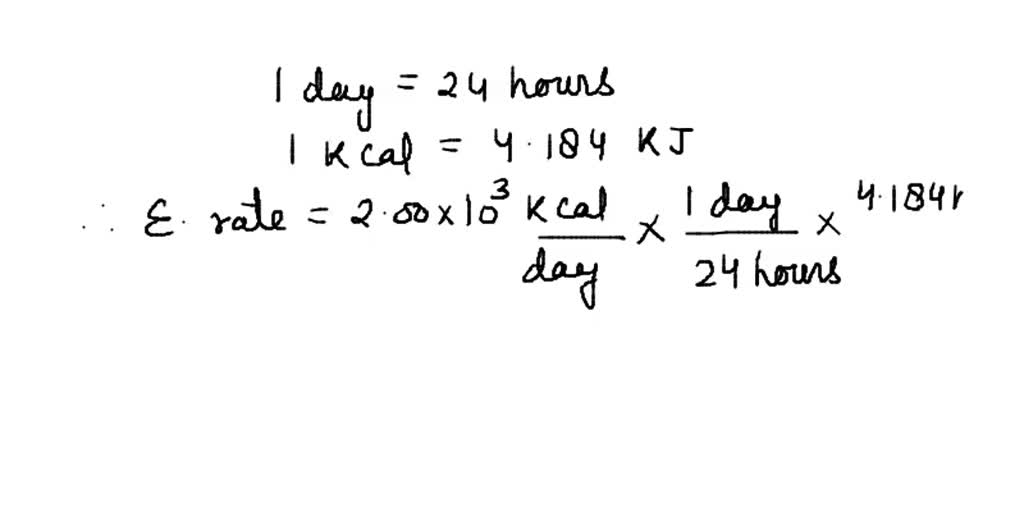 1 day = 24 hours
1 K cal = 4.184 KJ
∴ E. rate = 2.00 × 10³ K cal / day × 1 day / 24 hours × 4.184